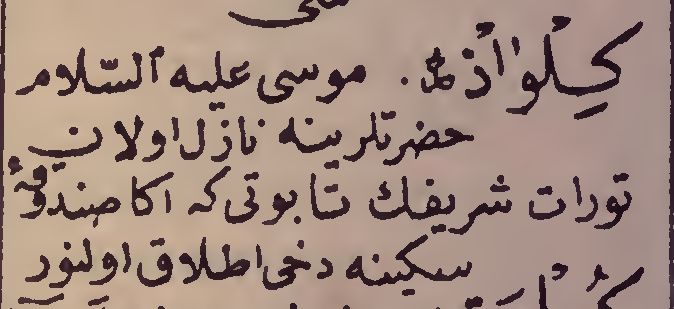 كِلْوَاذٌ . موسى عليه السّلام
حضرتلرينه نازل اولان
تورات شريفك تابوتى كه اكا صندوقهٔ
سكينه دخى اطلاق اولنور